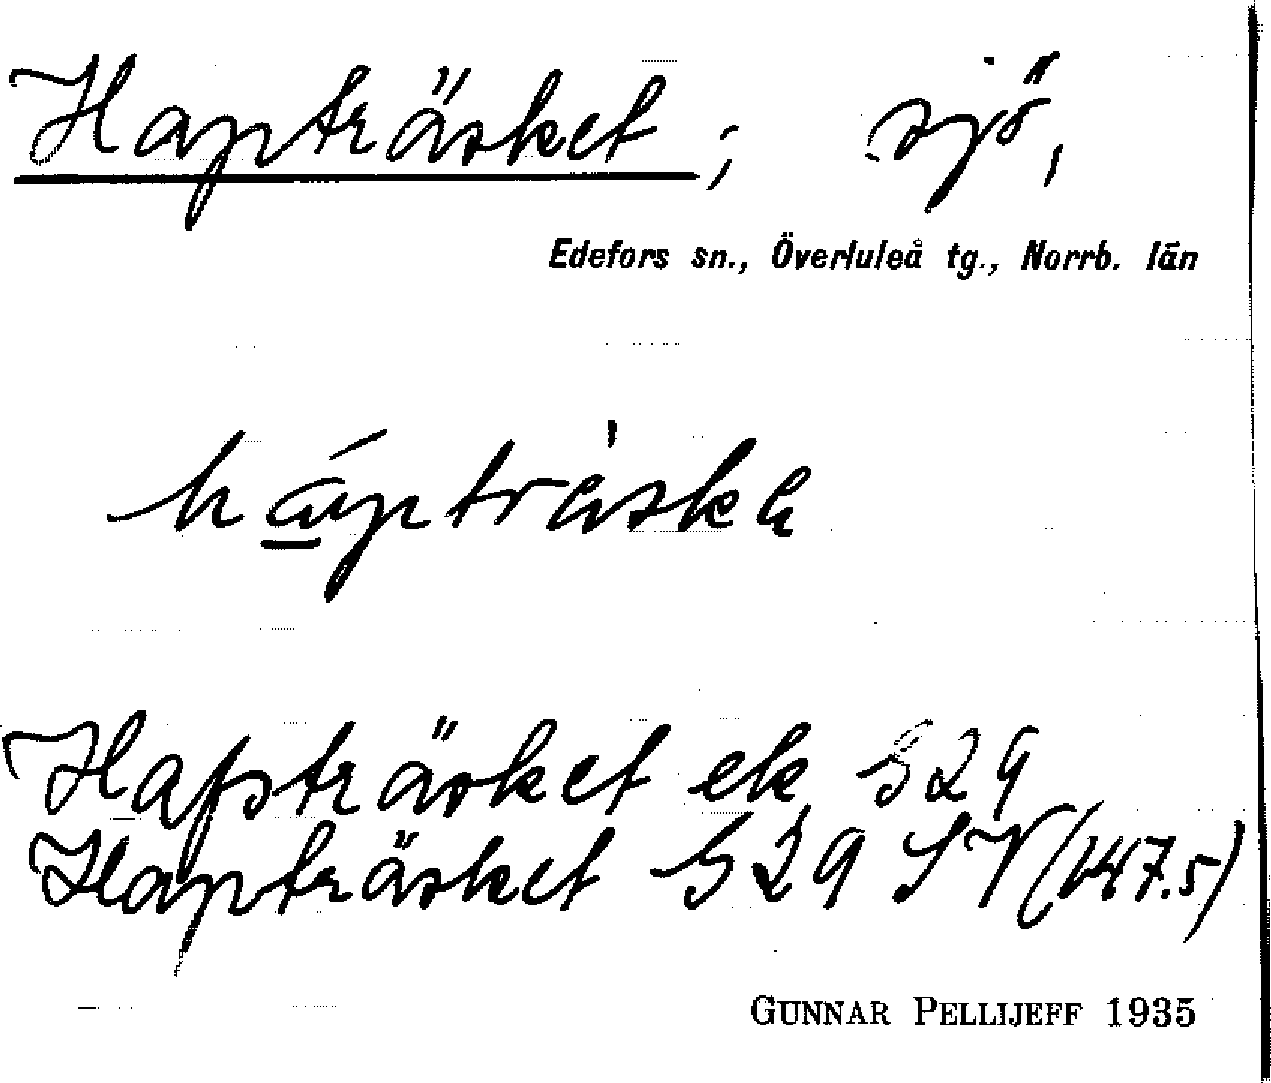 Hapträsket; sjö,
Edefors sn., Överluleå tg., Norrb. län
hápträska
Hapsträsket ek S29
Hapträsket S29 SV (147.5)
GUNNAR PELLIJEFF 1935